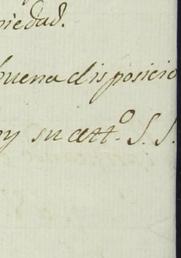 piedad.
buena disposicio
y su att.º S. S.